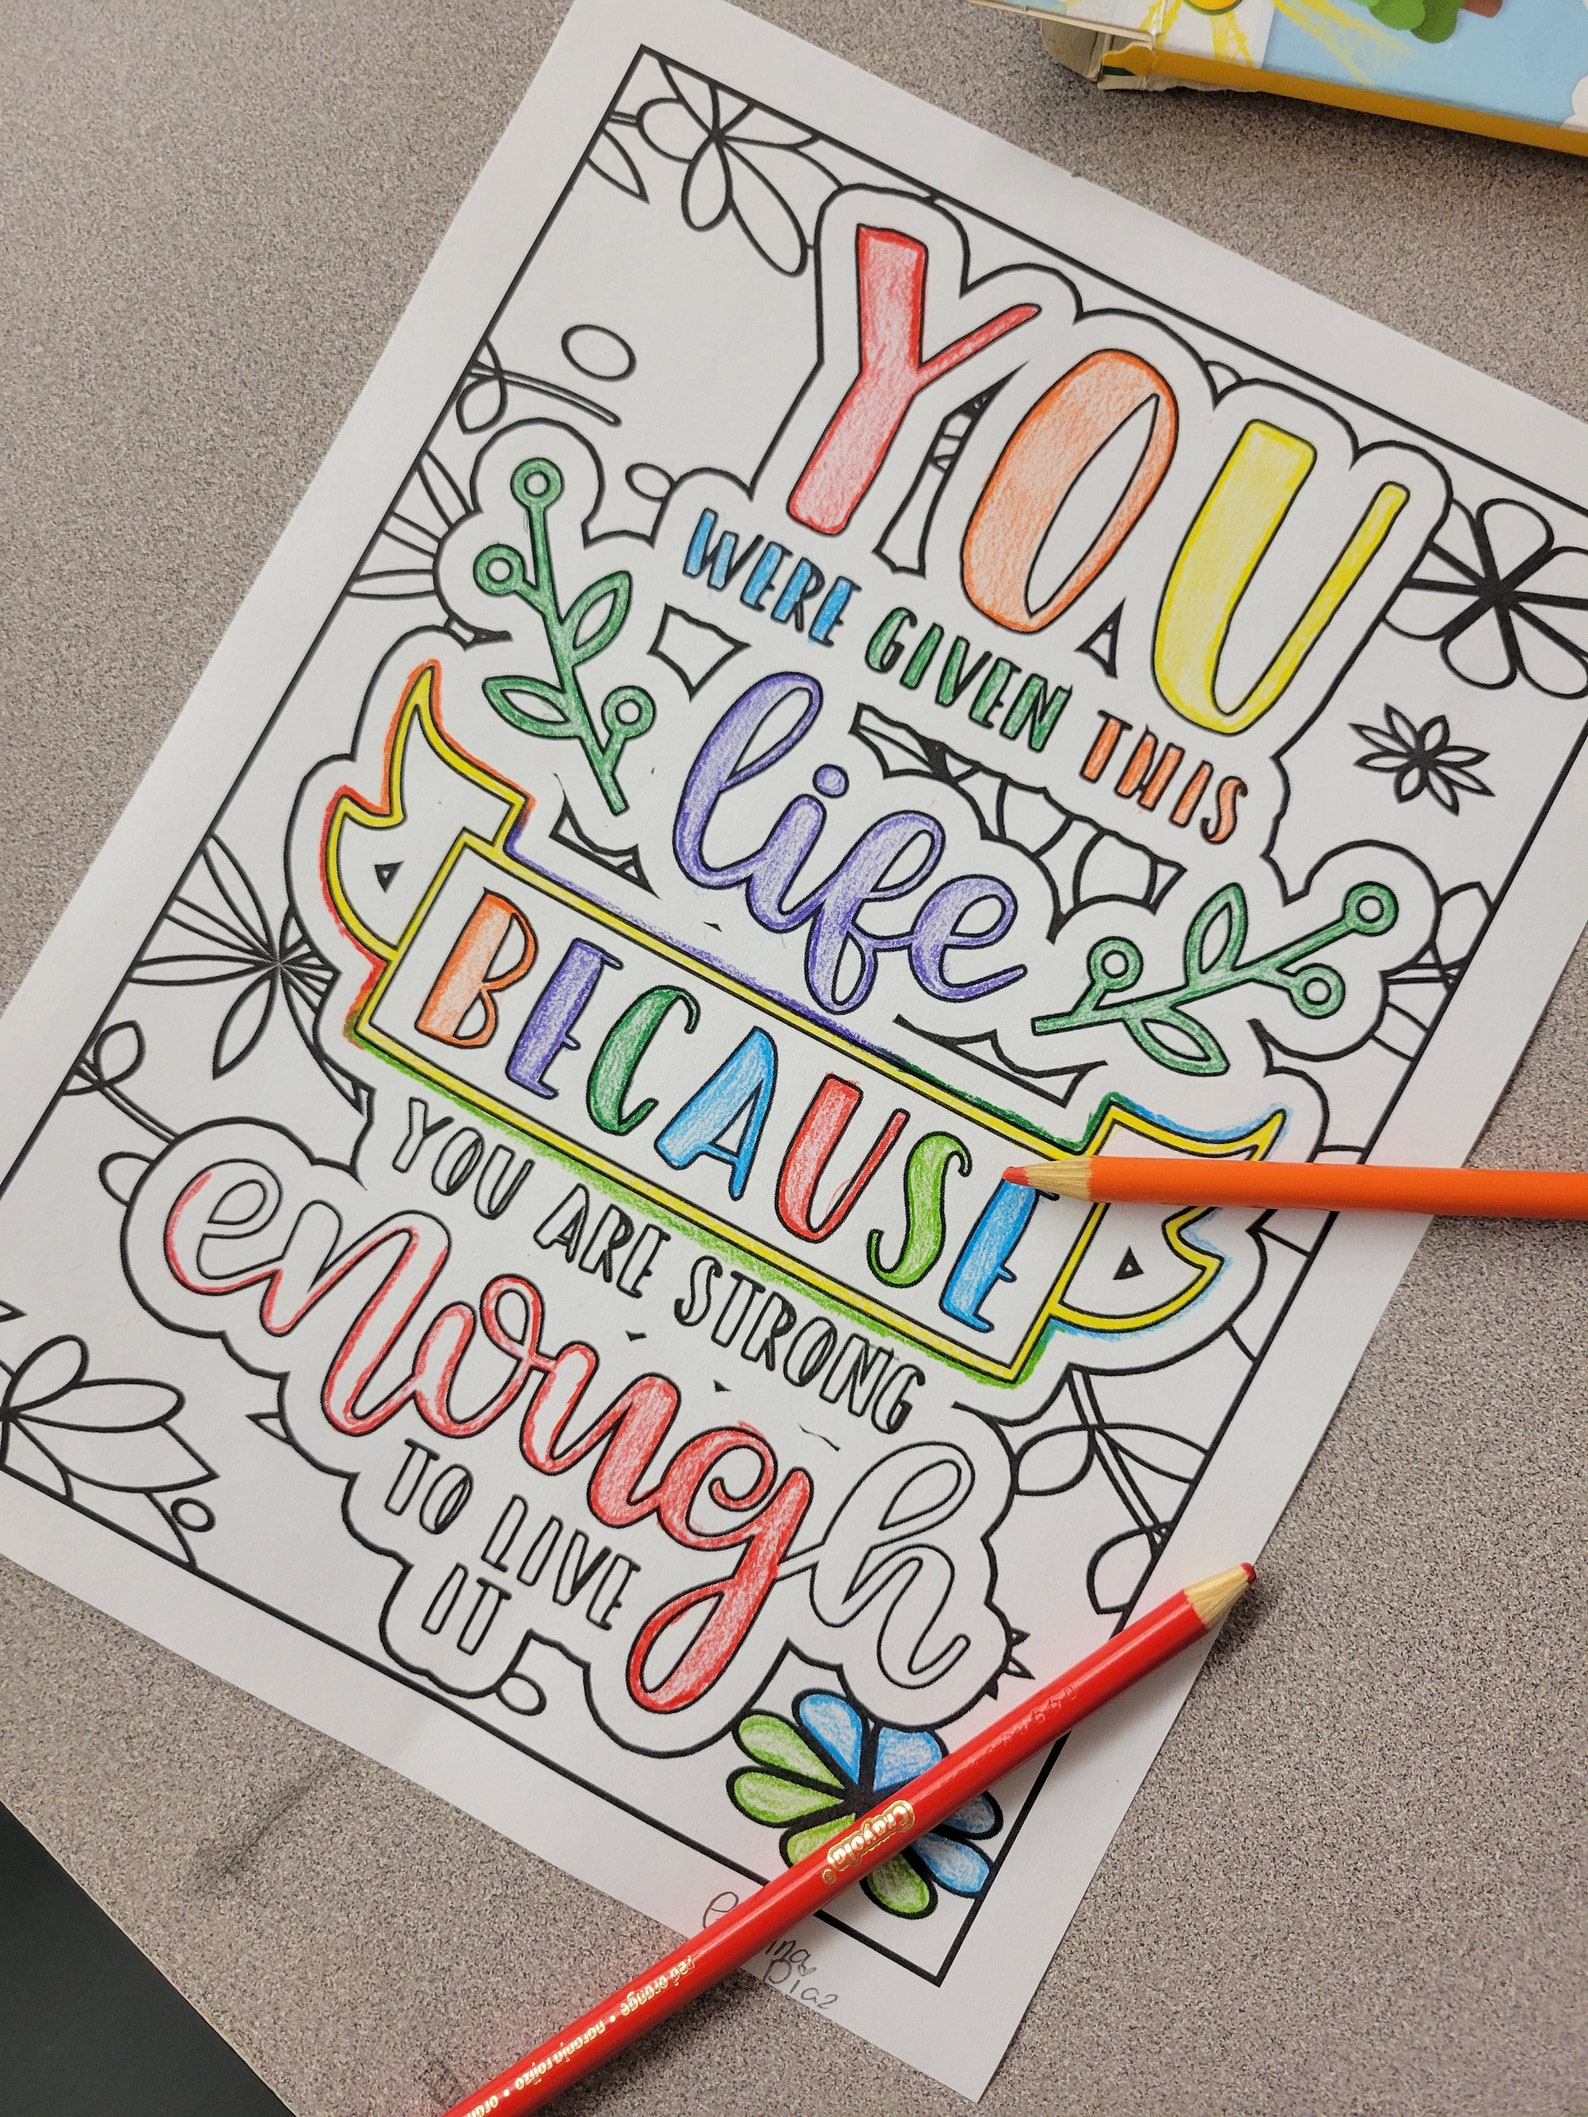 YOU
WERE GIVEN THIS
life
BECAUSE
YOU ARE STRONG
enough
TO LIVE
IT
Crayola
red orange • naranja rojizo •
Diaz